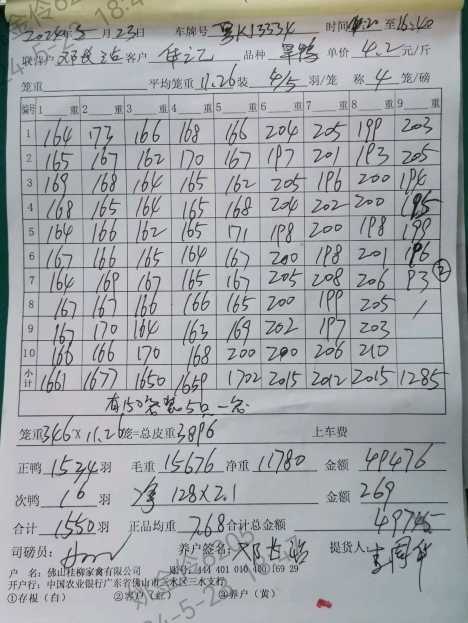 2024年5月23日 车牌号 K13334 时间 至16:40
客户 品种 旱鸭 单价 4.2 元/斤
笼重 平均笼重 11.26 装 4/5 羽/笼 称 4 笼/磅
编号 1 重 2 重 3 重 4 重 5 重 6 重 7 重 8 重 9 重
1 164 173 166 168 166 204 205 199 203
2 165 167 162 170 167 197 201 193 205
3 169 168 164 165 162 205 196 200 194
4 168 165 164 165 168 204 202 200 195
5 164 166 162 165 171 198 200 198 199
6 167 166 165 164 167 200 198 201 196
7 164 169 167 165 167 205 208 206 93 ②
8 167 167 166 166 165 200 199 205 /
9 167 170 164 163 169 202 197 203
10 166 166 170 168 200 200 206 210
小计 1661 1677 1650 1659 1702 2015 2012 2015 1285
有150 5只一笼
笼重 346 × 11.26 笼=总皮重 3896 上车费
正鸭 1534 羽 毛重 15676 净重 11780 金额 49476
次鸭 16 羽 净 128×2.1 金额 269
合计 1550 羽 正品均重 7.68 合计总金额 49745
司磅员: 养户签名: 提货人:
户 名: 佛山桂柳家禽有限公司 账号: 444 401 010 400 169 29
开户行: 中国农业银行广东省佛山市三水区三水支行
①存根（白） ②客户（红） ③养户（黄）